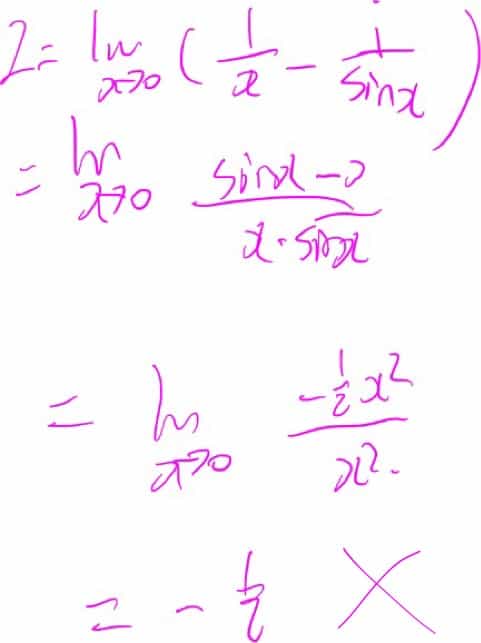 I = lim x→0 ( 1/x - 1/sinx )
= lim x→0 (sinx - x)/(x·sinx)
= lim x→0 (-1/2 x²)/(x²)
= -1/2 ×